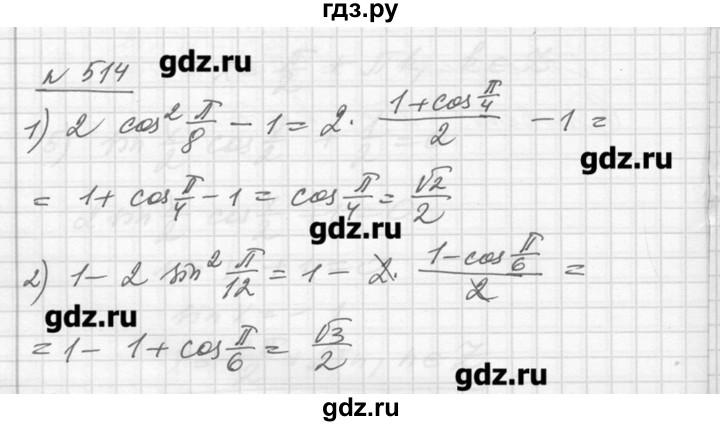 гдз.ру
№ 514
gdz.ru
1) 2 cos² π/8 − 1 = 2 · (1 + cos π/4)/2 − 1 =
gdz.ru
= 1 + cos π/4 − 1 = cos π/4 = √2/2
gdz.ru
2) 1 − 2 sin² π/12 = 1 − 2 · (1 − cos π/6)/2 =
gdz.ru
= 1 − 1 + cos π/6 = √3/2
gdz.ru
gdz.ru